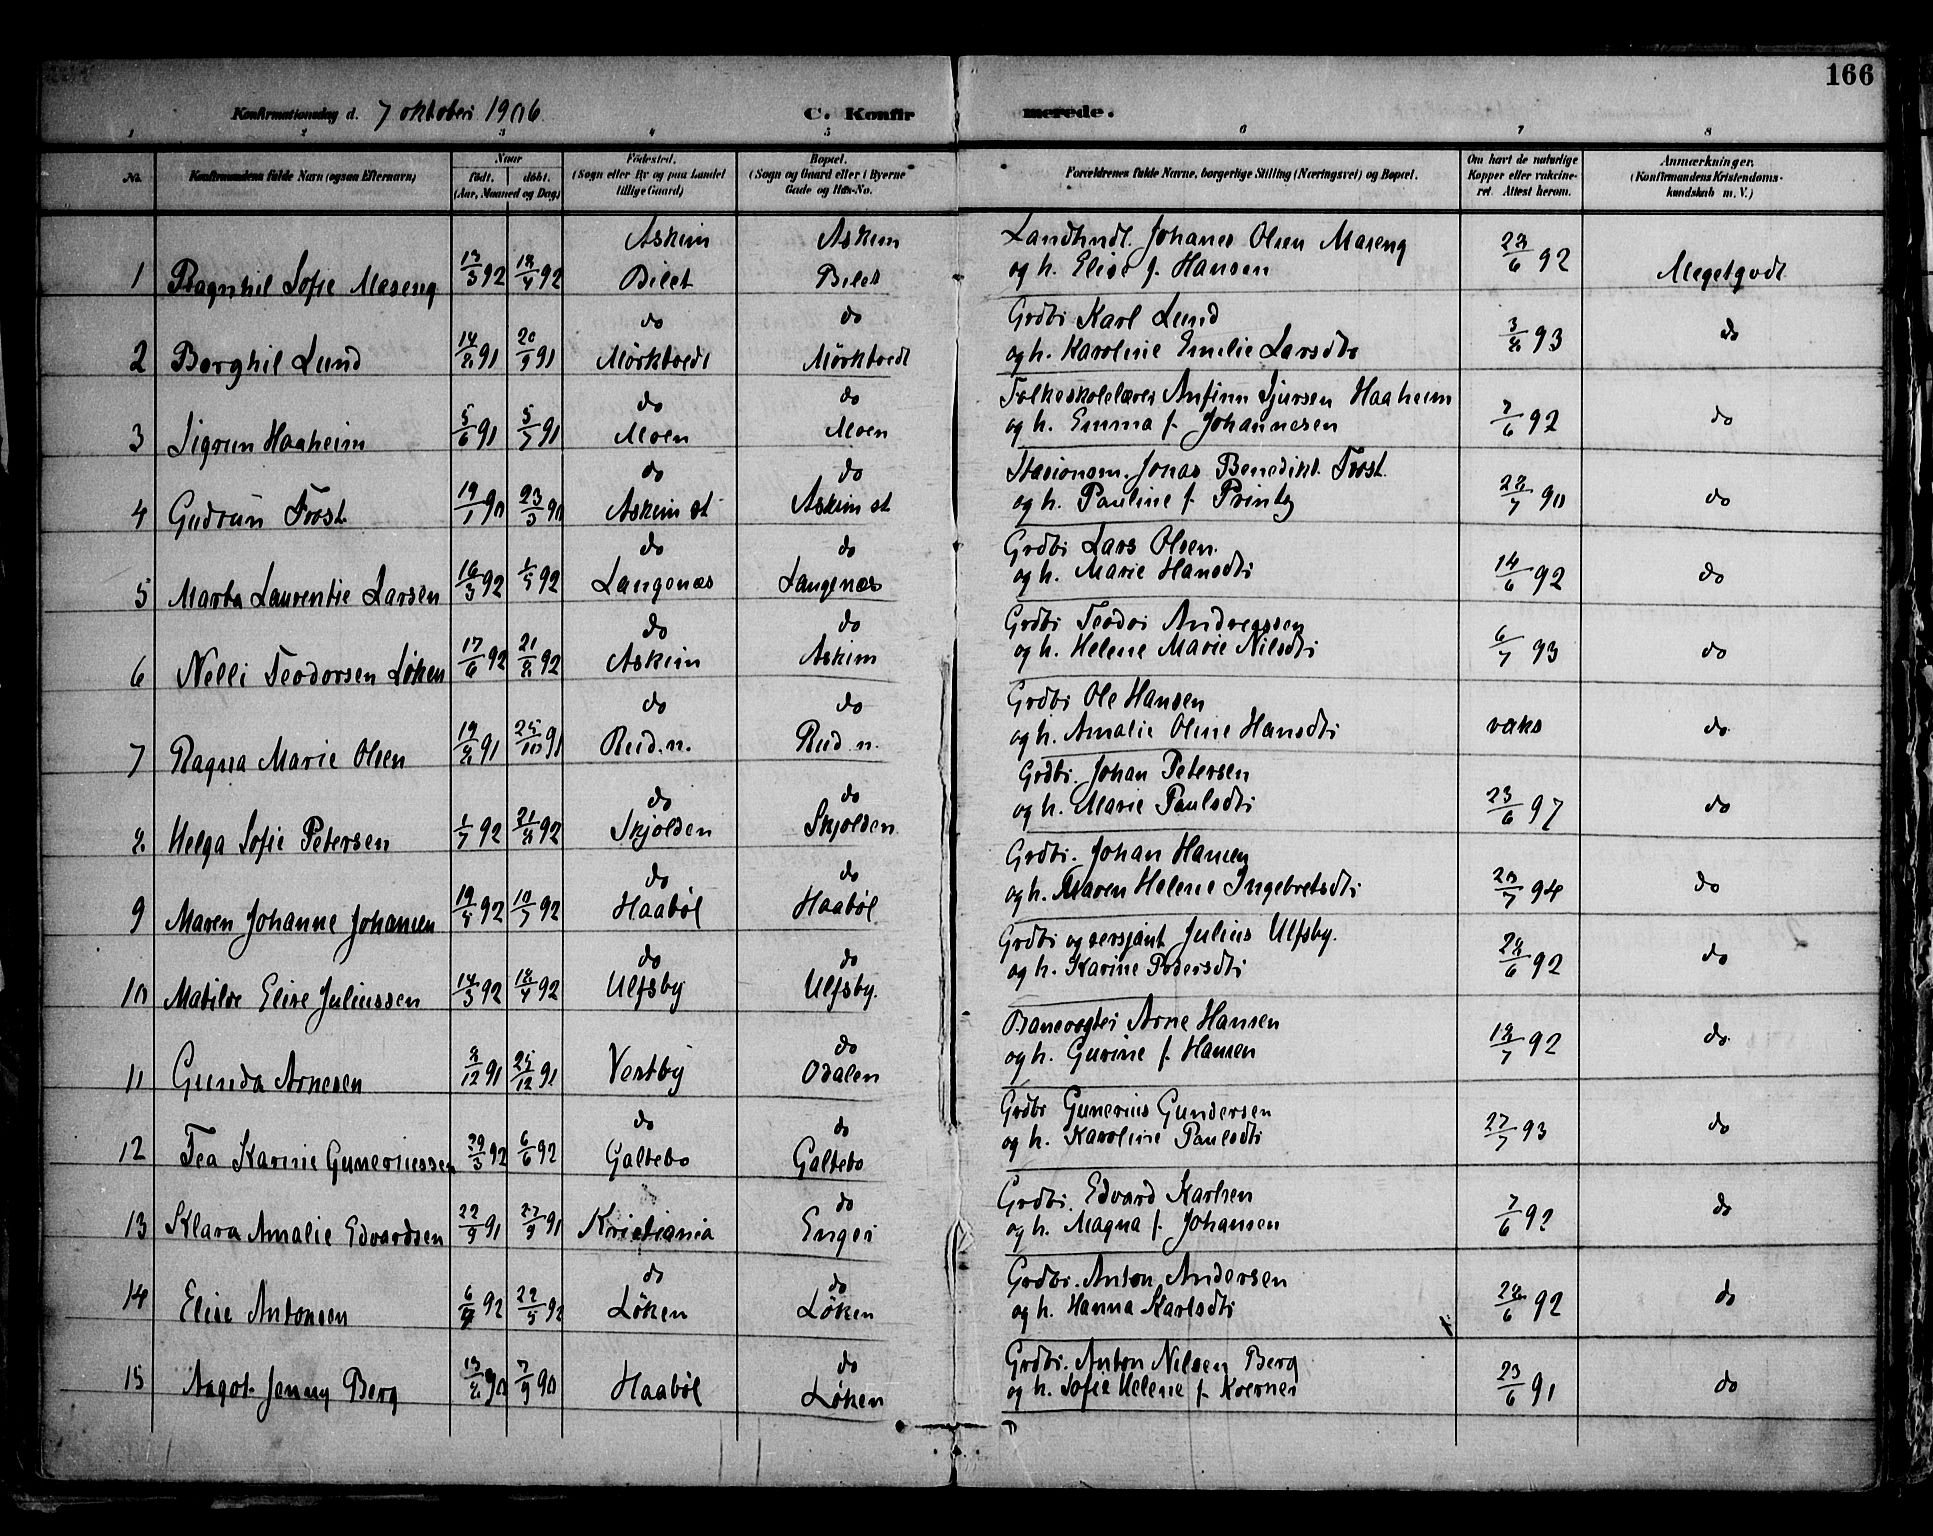 166
Konfirmationsdag d. 7 oktober 1906 C. Konfirmerede.
1 2 3 4 5 6 7 8
No. Konfirmandens fulde Navn (ogsaa Efternavn) Naar født. døbt. (Aar, Maaned og Dag) Fødested. (Sogn eller By og paa Landet tillige Gaard) Bopæl. (Sogn og Gaard eller i Byerne Gade og Hus-No. Forældrenes fulde Navne, borgerlige Stilling (Næringsvei) og Bopæl. Om havt de naturlige Kopper eller vakcineret. Attest herom. Anmærkninger. (Konfirmandens Kristendomskundskab m. V.)
Askim Askim Landhndl. Johanes Olsen Maseng
1 Ragnhil Sofie Maseng 13/3 92 18/4 92 Bilet Bilet og h. Elise f. Hansen 28/6 92 Megetgodt
do do Grdbr Karl Lund
2 Borghil Lund 14/8 91 20/9 91 Mørktvedt Mørktvedt og h. Karoline Emilie Larsdtr 3/8 93 do
do do Folkeskolelærer Anfinn Sjursen Haaheim
3 Sigrun Haaheim 5/6 91 5/7 91 Moen Moen og h. Emma f. Johannesen 7/6 92 do
do do Stasionsm. Jonas Benedikt Frost.
4 Gudrun Frost 19/1 90 23/3 90 Askim st Askim st og h. Pauline f. Printz 28/7 90 do
do do Grdbr Lars Olsen.
5 Marta Laurentie Larsen 16/3 92 1/5 92 Langenæs Langenæs og h. Marie Hansdtr 14/6 92 do
do do Grdbr Teodor Andreassen
6 Nelli Teodorsen Løken 17/6 92 21/8 92 Askim Askim og h. Helene Marie Nilsdtr 6/7 93 do
do do Grdbr Ole Hansen
7 Ragna Marie Olsen 19/8 91 25/10 91 Rud. n. Rud. n. og h. Amalie Oline Hansdtr vaks do
do do Grdbr. Johan Petersen
8 Helga Sofie Petersen 1/7 92 21/8 92 Skjolden Skjolden og h. Marie Paulsdtr 23/6 97 do
do do Grdbr. Johan Hansen
9 Maren Johanne Johansen 19/4 92 10/7 92 Haabøl Haabøl og h. Maren Helene Ingebretsdtr 20/7 94 do
do do Grdbr og sersjant Julius Ulfsby.
10 Matilde Elise Juliussen 14/3 92 18/4 92 Ulfsby Ulfsby. og h. Karine Pedersdtr 28/6 92 do
do Banevogter Arne Hansen
11 Gunda Arnesen 8/12 91 25/12 91 Vestby Odalen og h. Gurine f. Hansen 18/7 92 do
do do Grdbr Gunerius Gundersen
12 Tea Karine Guneriussen 29/3 92 6/6 92 Galtebo Galtebo og h. Karoline Paulsdtr 27/7 93 do
do Grdbr. Edvard Karlsen
13 Klara Amalie Edvardsen 22/9 91 27/9 91 Kristiania Enger og h. Magna f. Johansen 7/6 92 do
do do Grdbr. Anton Andersen
14 Elise Antonsen 6/4 92 22/5 92 Løken Løken og h. Hanna Karlsdtr 28/6 92 do
do Grdbr. Anton Nilsen Berg
15 Aagot Jenny Berg 13/8 90 7/9 90 Haabøl Løken og h. Sofie Helene f. Kverner 23/6 91 do